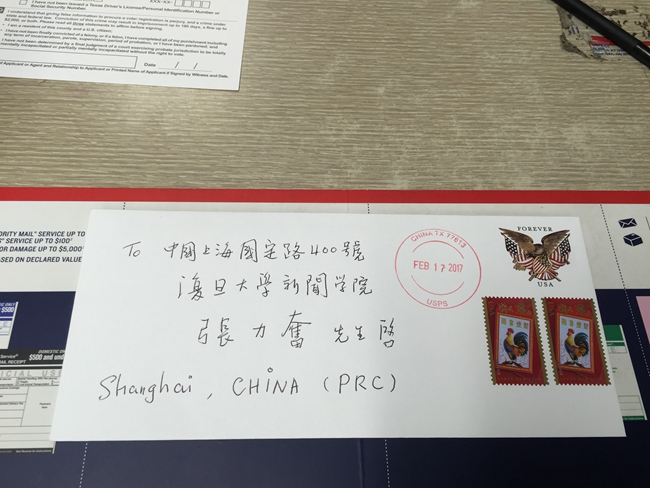 I have not been issued a Texas Driver's License/Personal Identification Number or
Social Security Number.
XXX-XX-
I understand that giving false information to procure a voter registration is perjury, and a crime under
state and federal law. Conviction of this crime may result in imprisonment up to 180 days, a fine up to
$2,000, or both. Please read all three statements to affirm before signing.
I am a resident of this county and a U.S. citizen.
I have not been finally convicted of a felony, or if a felon, I have completed all of my punishment including
any term of incarceration, parole, supervision, period of probation, or I have been pardoned, and
I have not been determined by a final judgment of a court exercising probate jurisdiction to be totally
mentally incapacitated or partially mentally incapacitated without the right to vote.
Date / /
of Applicant or Agent and Relationship to Applicant or Printed Name of Applicant if Signed by Witness and Date
MAIL® SERVICE UP TO
SERVICE UP TO $100
OR DAMAGE UP TO $5,000
BASED ON DECLARED VALUE
To 中國上海國定路400號
復旦大學新聞学院
張力奮 先生啓
Shanghai, CHINA (PRC)
CHINA TX 77613
FEB 17 2017
USPS
FOREVER
USA
$500 and under